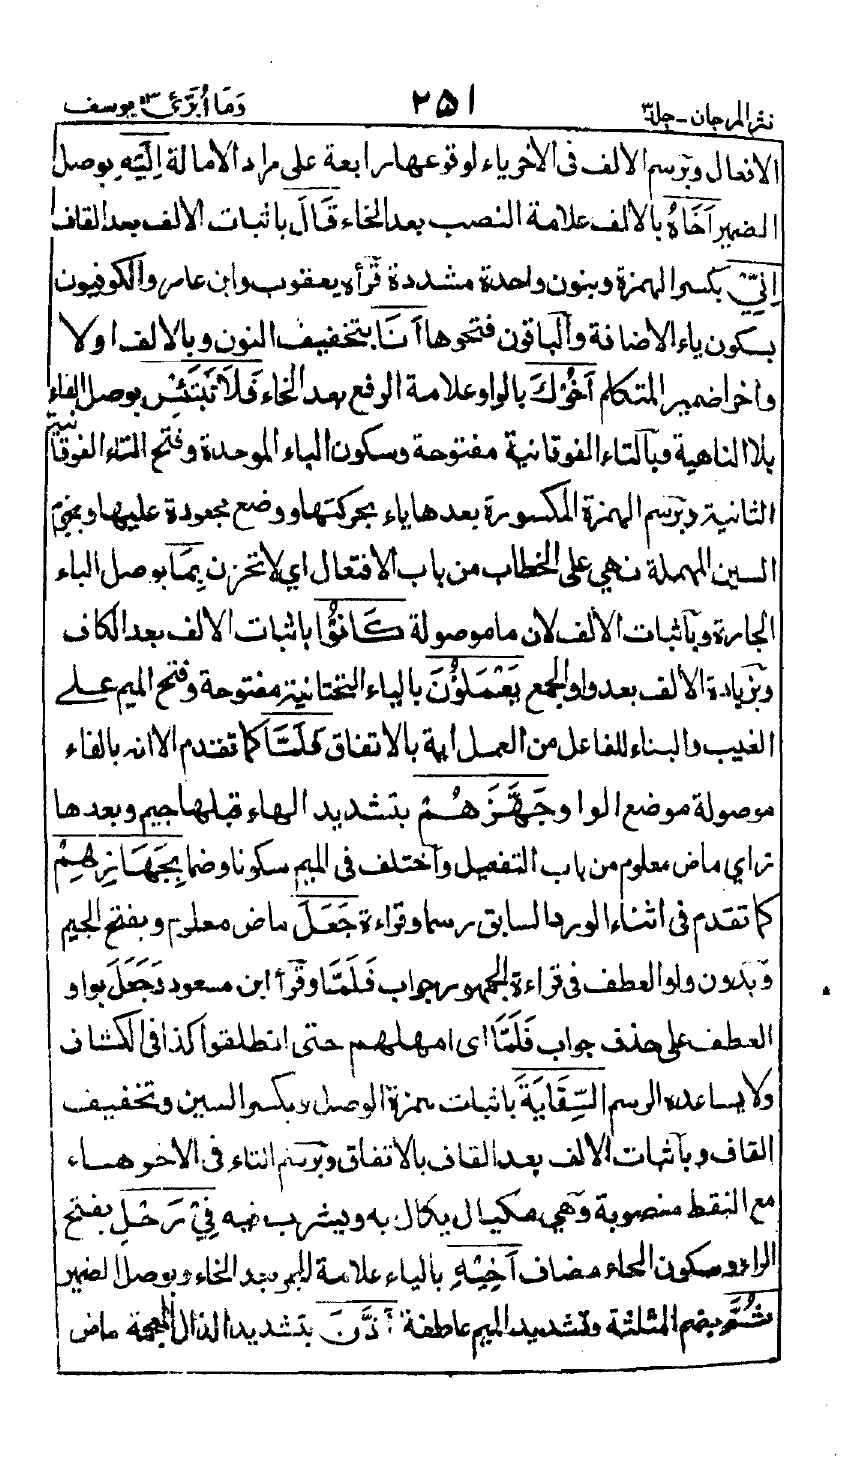 نثر المرجان - جلد ٣
٢٥١
وَمَا أُبَرِّئُ ١٣ يوسف
الافعال وبرسم الالف فى الآخر ياء لوقوعها رابعة على مراد الامالة اِلَيْهِ بوصل
الضمير اَخَاهُ بالالف علامة النصب بعد الخاء قَالَ باثبات الالف بعد القاف
اِنِّيْ بكسر الهمزة وبنون واحدة مشددة قرأه يعقوب وابن عامر والكوفيون
بسكون ياء الاضافة والباقون فتحوها اَنَا بتخفيف النون وبالالف اولا
وآخرا ضمير المتكلم اَخُوْكَ بالواو علامة الرفع بعد الخاء فَلَا تَبْتَئِسْ بوصل الفاء
بلا الناهية وبالتاء الفوقانية مفتوحة وسكون الباء الموحدة وفتح التاء الفوقانية
الثانية وبرسم الهمزة المكسورة بعدها ياء بحركتها ووضع مجعودة عليها وبجزم
السين المهملة نهي على الخطاب من باب الافتعال اي لا تحزن بِمَا بوصل الباء
الجارة وباثبات الالف لان ما موصولة كَانُوْا باثبات الالف بعد الكاف
وبزيادة الالف بعد واو الجمع يَعْمَلُوْنَ بالياء التحتانية مفتوحة وفتح الميم على
الغيب والبناء للفاعل من العمل اية بالاتفاق فَلَمَّا كما تقدم الا انه بالفاء
موصولة موضع الواو جَهَّزَهُمْ بتشديد الهاء قبلها جيم وبعدها
زاي ماض معلوم من باب التفعيل واختلف فى الميم سكونا وضما بِجَهَازِهِمْ
كما تقدم فى اثناء الورد السابق رسما وقراءة جَعَلَ ماض معلوم وبفتح الجيم
وبدون واو العطف فى قراءة الجمهور جواب فَلَمَّا وقرأ ابن مسعود وَجَعَلَ بواو
العطف على حذف جواب فَلَمَّا اى امهلهم حتى انطلقوا كذا فى الكشاف
ولا يساعده الرسم السِّقَايَةَ باثبات همزة الوصل وبكسر السين وتخفيف
القاف وباثبات الالف بعد القاف بالاتفاق وبرسم التاء فى الآخر هاء
مع النقط منصوبة وهي مكيال يكال به ويشرب فيه فِيْ رَحْلِ بفتح
الراء وسكون الحاء مضاف اَخِيْهِ بالياء علامة للجر بعد الخاء وبوصل الضمير
ثُمَّ بضم المثلثة وتشديد الميم عاطفة اَذَّنَ بتشديد الذال المعجمة ماض